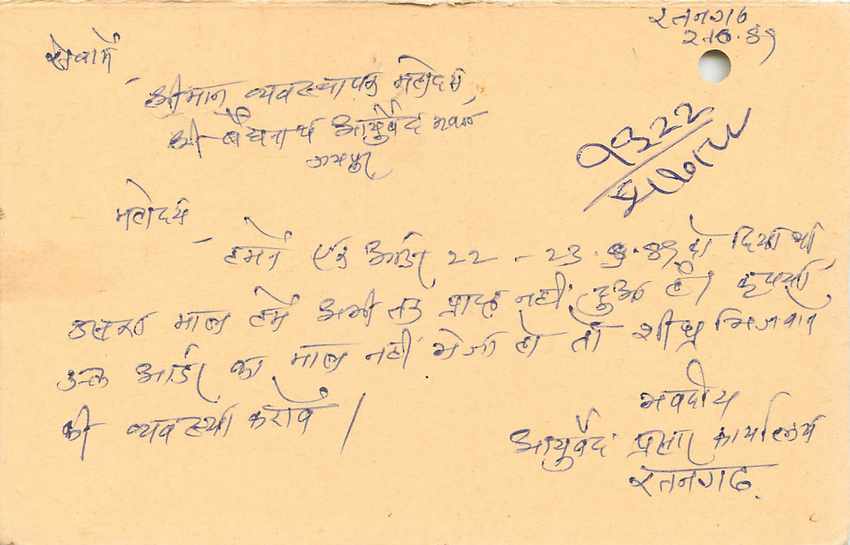 रतनगढ
सेवामें
श्रीमान व्यवस्थापक महोदय,
श्री बैद्यनाथ आयुर्वेद भवन
महोदय,
हमने एक आर्डर 22 - 23 को दिया था,
उसका माल हमें अभी तक प्राप्त नहीं हुआ है। कृपया,
उक्त आर्डर का माल नहीं भेजा हो तो शीघ्र भिजवाने
की व्यवस्था करावें।
भवदीय
आयुर्वेद प्रचार कार्यालय
रतनगढ.